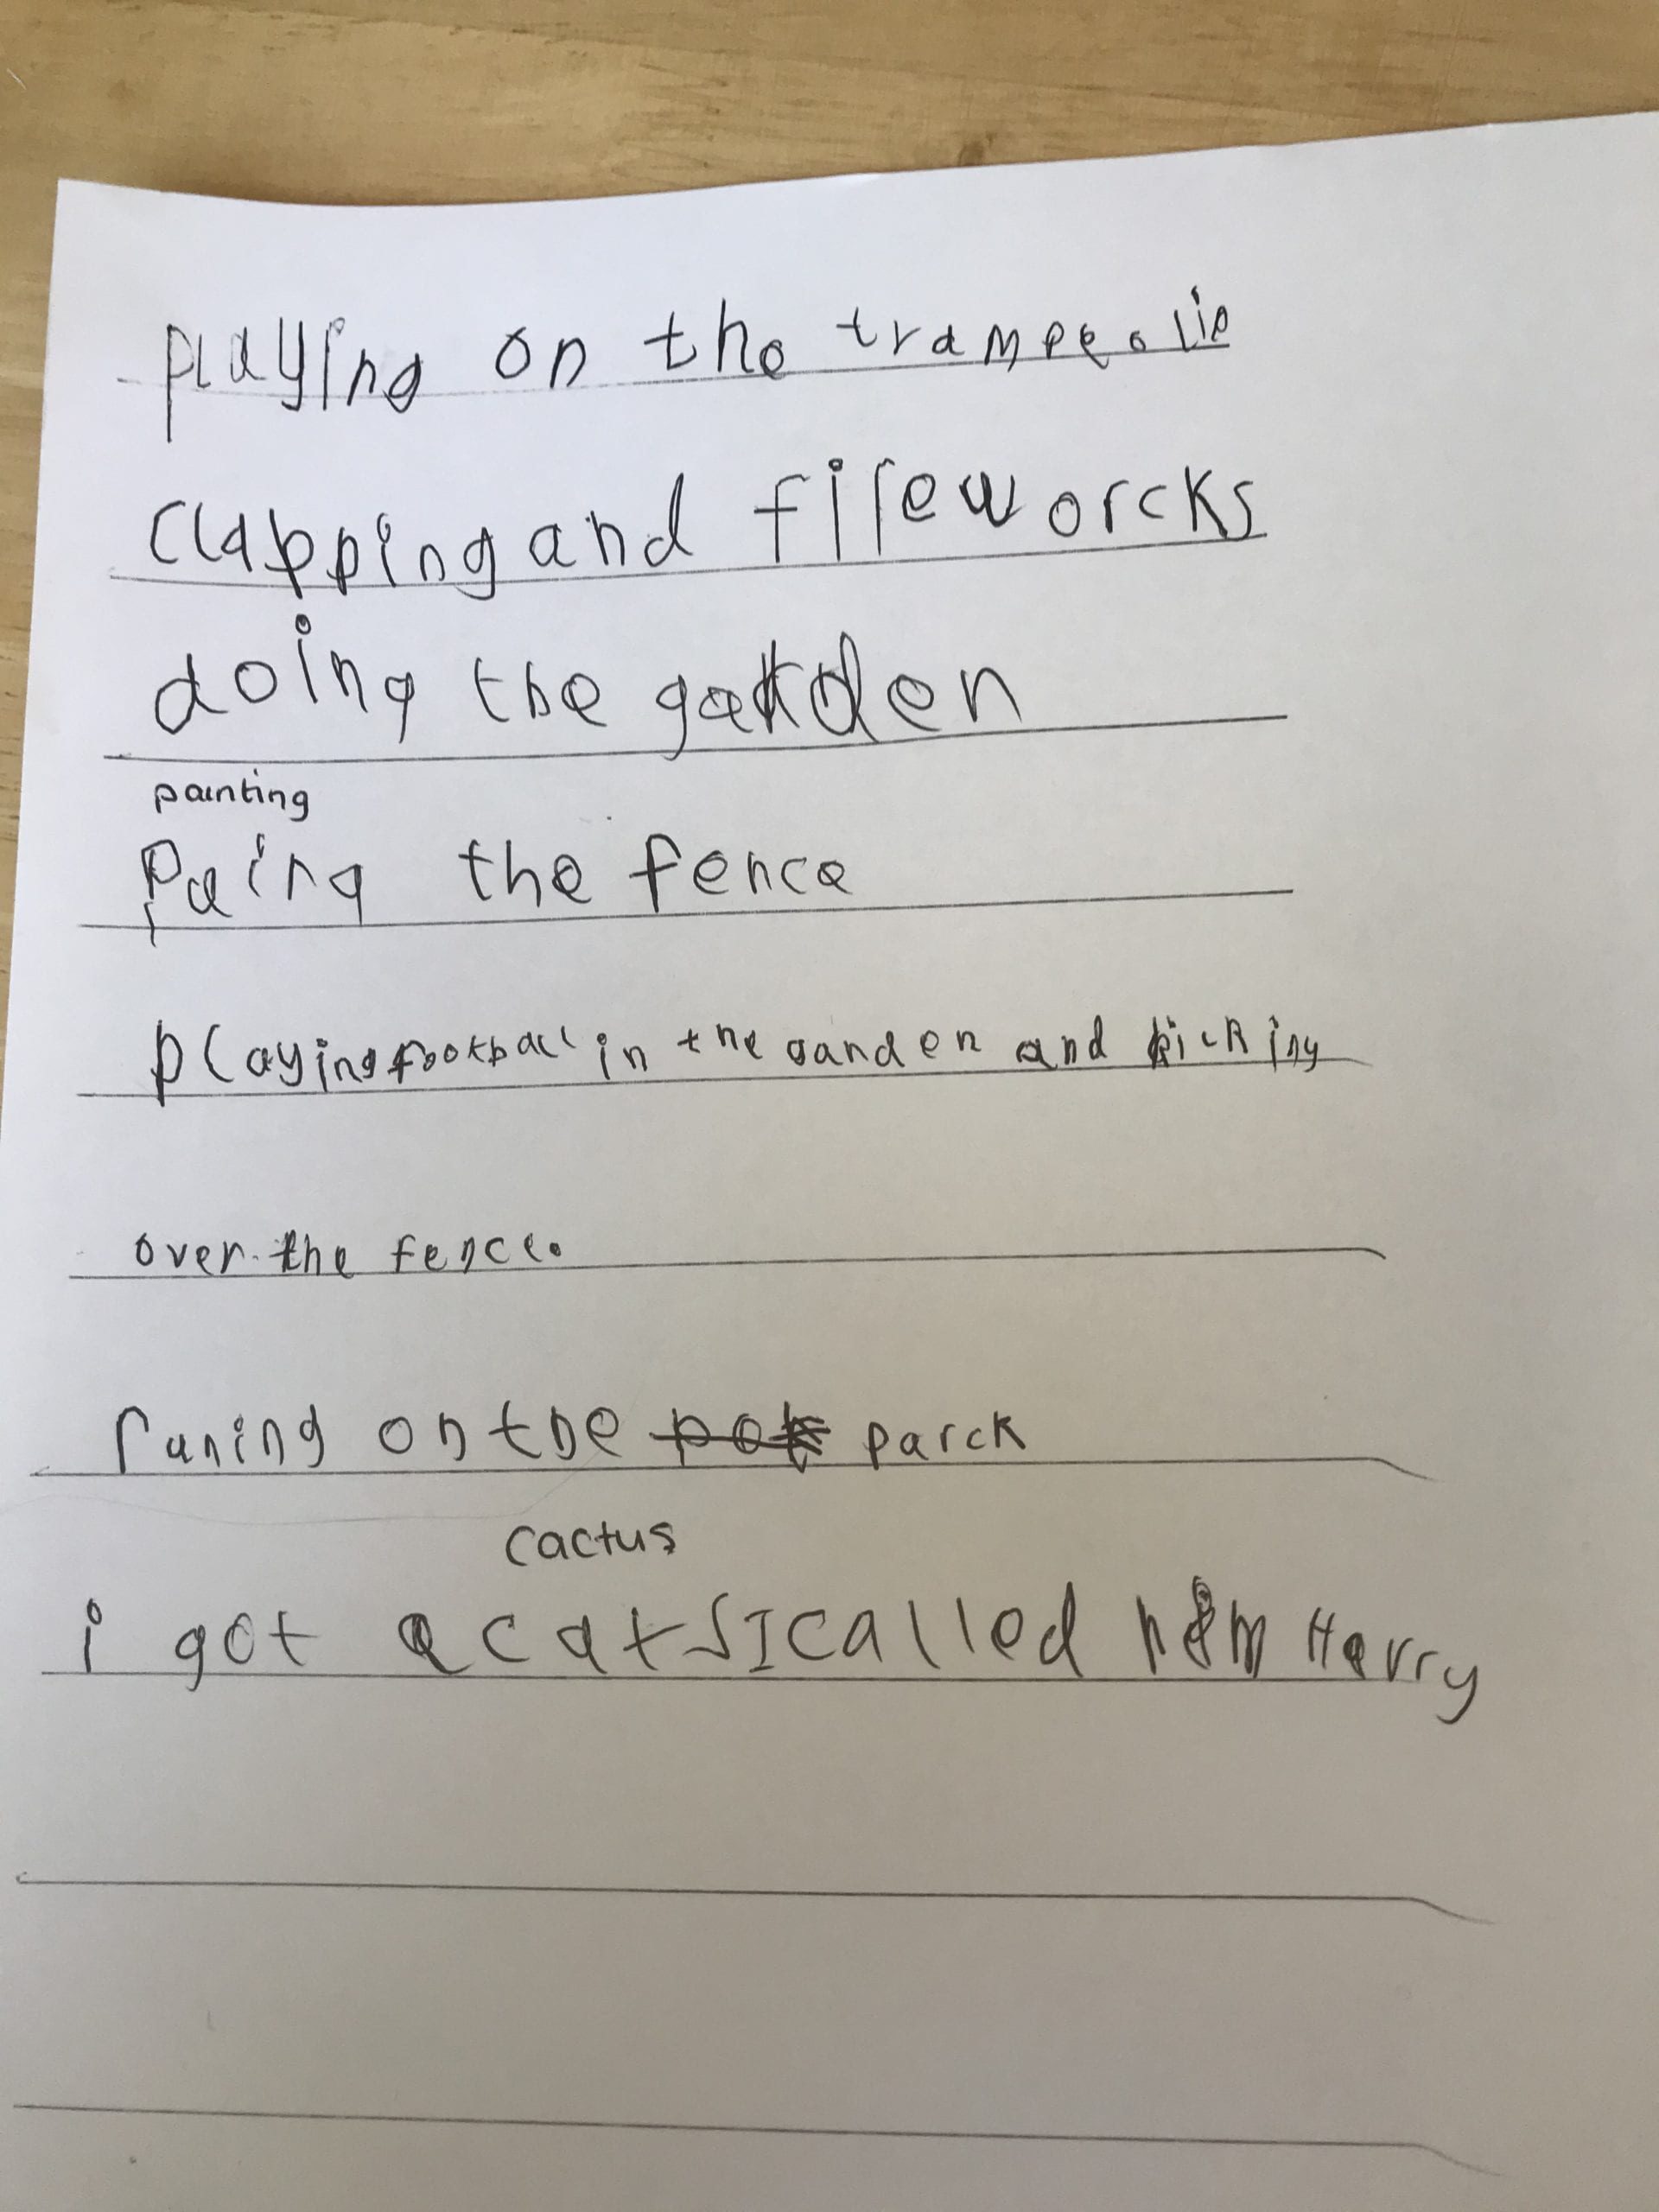 playing on the trampeolie
clapping and fireworcks
doing the garden
painting
Paing the fence
playing football in the ganden and kicking
over the fence.
runing on the parck
cactus
i got a catsIcalled him Harry